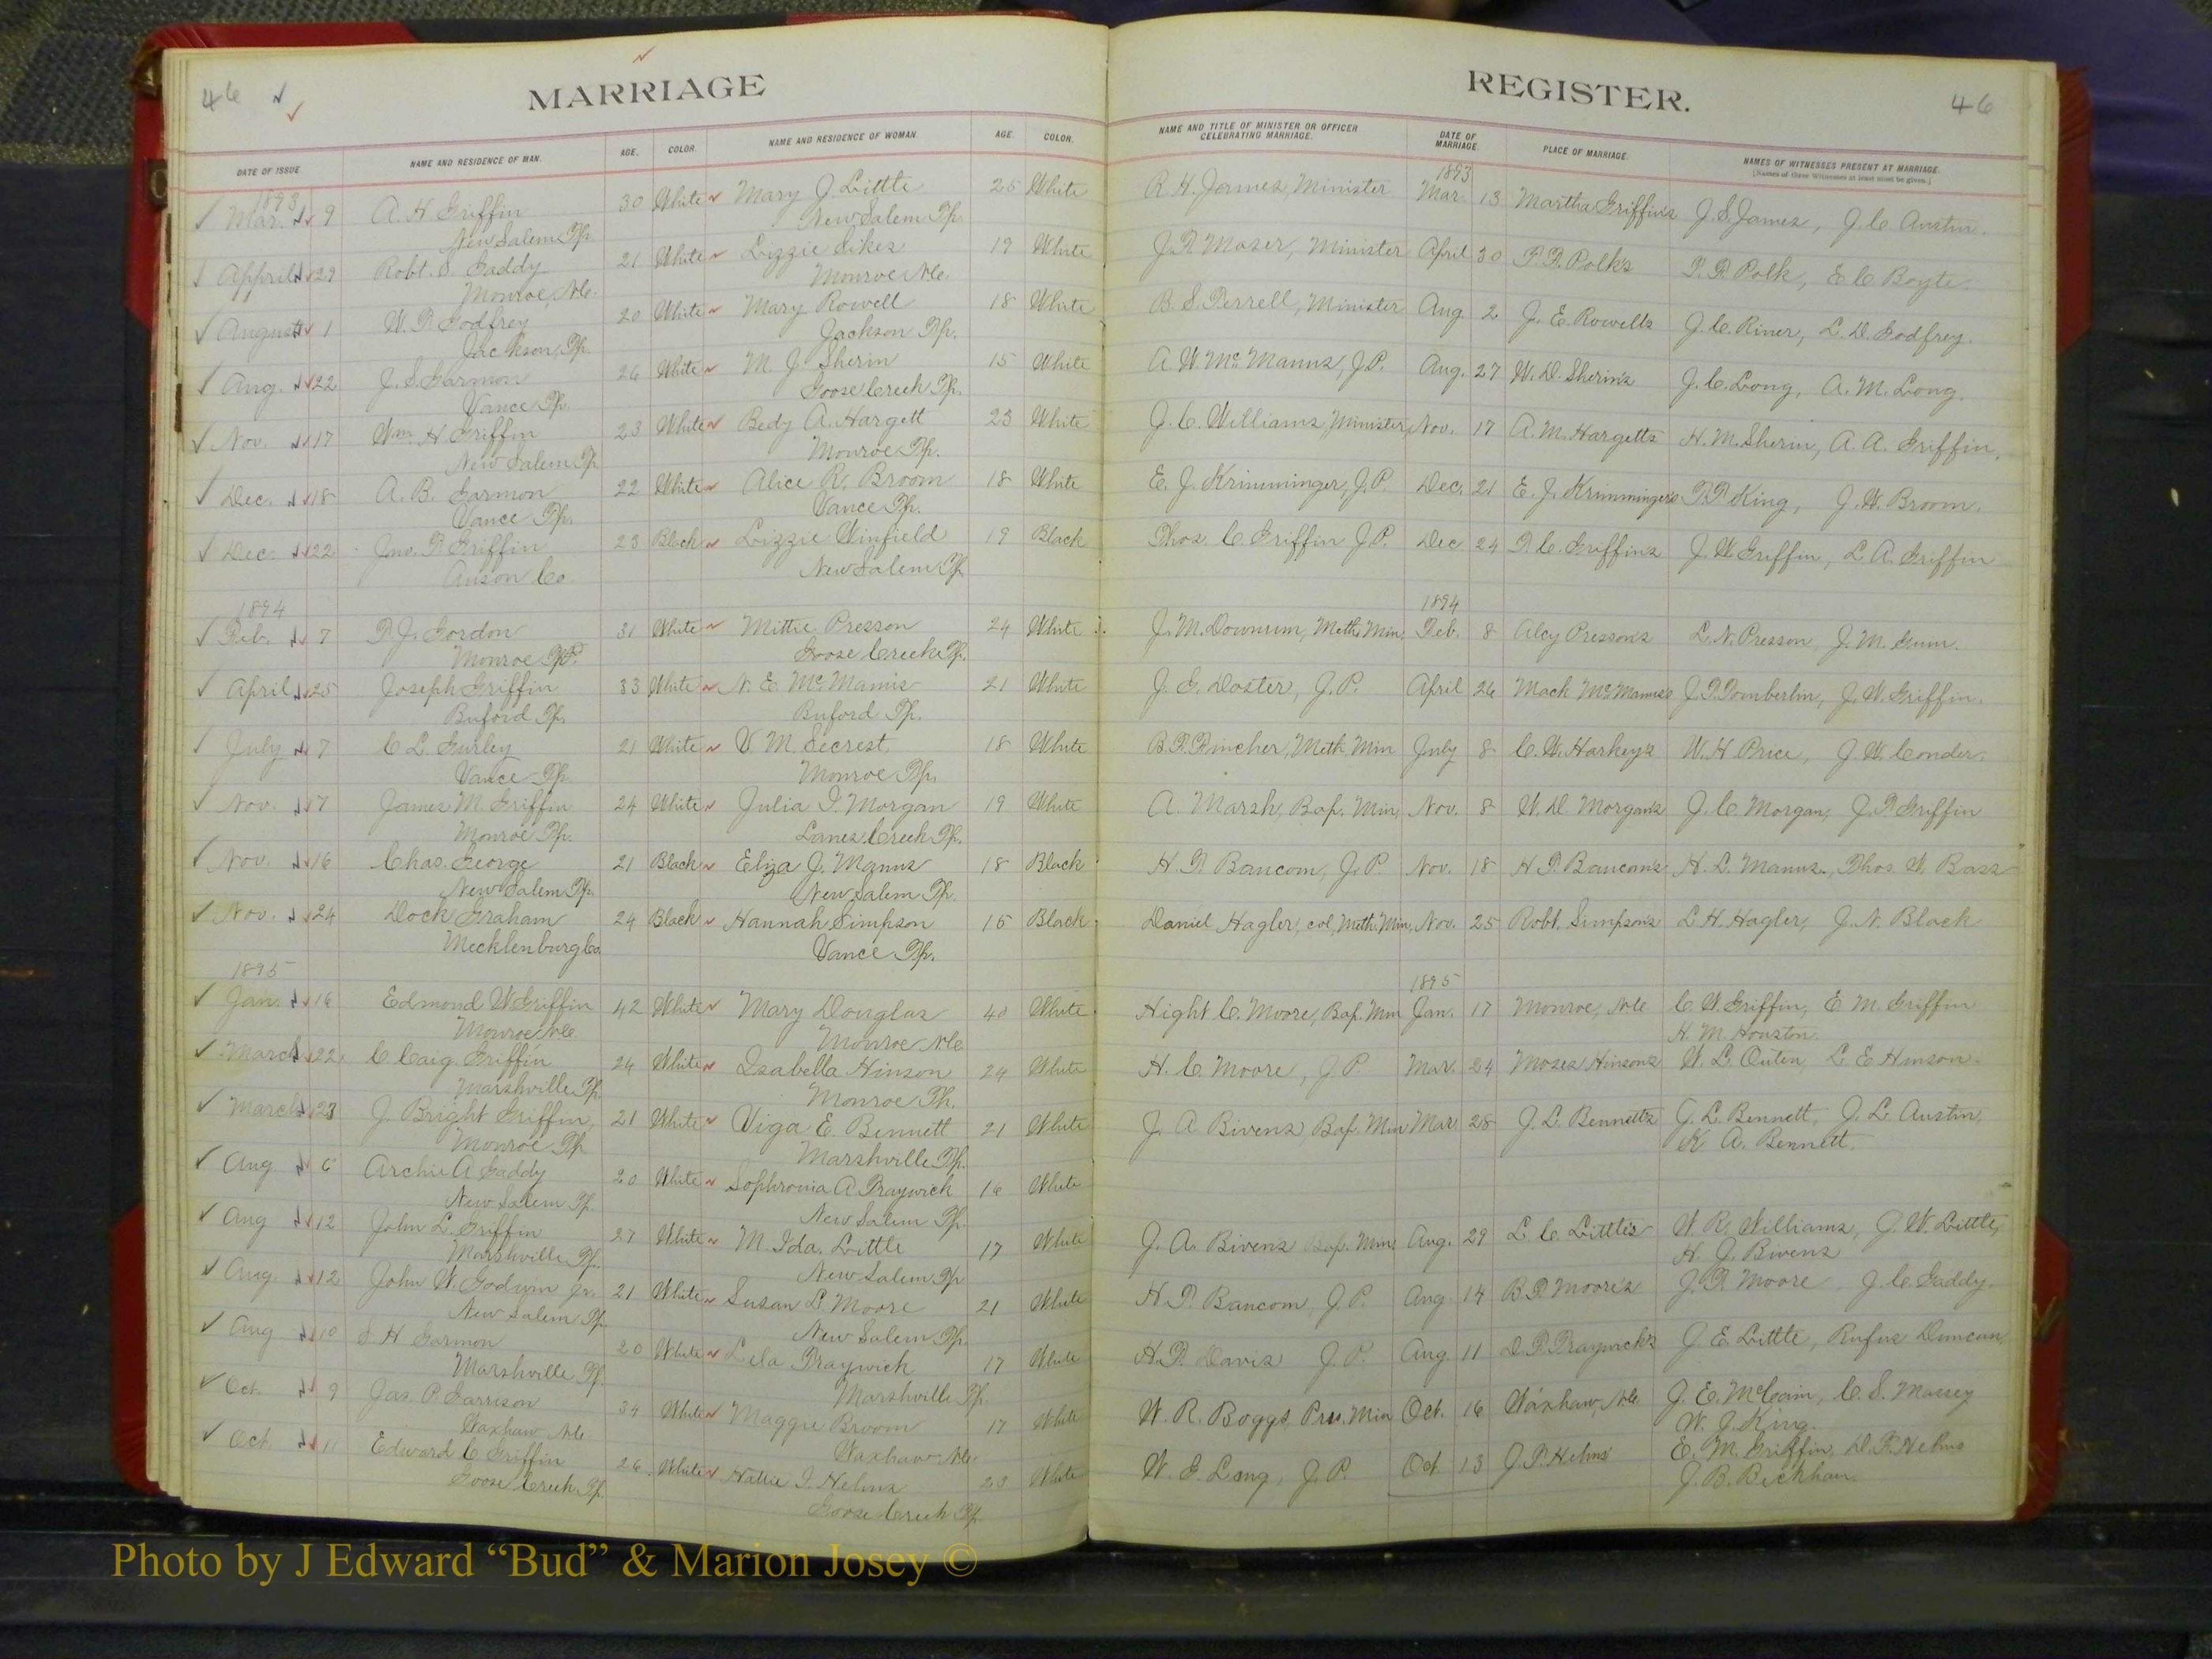 46
MARRIAGE
REGISTER.
46
DATE OF ISSUE.
NAME AND RESIDENCE OF MAN.
AGE.
COLOR.
NAME AND RESIDENCE OF WOMAN.
AGE.
COLOR.
NAME AND TITLE OF MINISTER OR OFFICER
CELEBRATING MARRIAGE.
DATE OF
MARRIAGE.
PLACE OF MARRIAGE.
NAMES OF WITNESSES PRESENT AT MARRIAGE.
[Names of three Witnesses at least must be given.]
1893 1893
Mar. 9 A. H Griffin 30 White Mary J. Little 25 White R. H. James, Minister Mar. 13 Martha Griffin's J. S. James, J. C. Austin.
New Salem Tp. New Salem Tp.
Appril 29 Robt. Gaddy 21 White Lizzie Sikes 19 White Moser, Minister April 30 Polk's Polk, E. C. Boyte.
Monroe, N.C. Monroe N.C.
August 1 W. Godfrey 20 White Mary Rowell 18 White B. S. Terrell, Minister Aug. 2 J. E. Rowells J. C. Riner, L. D. Godfrey.
Jackson, Tp. Jackson Tp.
Aug. 22 J. S. Garmon 26 White M. J. Sherin 15 White A. W. McManus, J.P. Aug. 27 W. D. Sherin's J. C. Long, A. M. Long.
Vance Tp. Goose Creek Tp.
Nov. 17 Wm. H Griffin 23 White Bedy A. Hargett 23 White J. C. Williams, Minister Nov. 17 A. M. Hargetts H. M. Sherin, A. A. Griffin,
New Salem Tp. Monroe Tp.
Dec. 18 A. B. Garmon 22 White Alice R. Broom 18 White E. J. Krimminger, J.P. Dec. 21 E. J. Krimminger's King, J. W. Broom.
Vance Tp. Vance Tp.
Dec. 22 Jno. T. Griffin 23 Black Lizzie Winfield 19 Black Thos. C. Griffin J.P. Dec 24 T. C. Griffins J. W Griffin, L. A. Griffin
Anson Co. New Salem Tp.
1894 1894
Feb. 7 Gordon 31 White Mittie Presson 24 White J. M. Downum, Meth. Min. Feb. 8 Alcy Presson's L. N. Presson, J. M. Gum.
Monroe Tp. Goose Creek Tp.
April 25 Joseph Griffin 33 White N. E. McManis 21 White J. G. Doster, J.P. April 26 Mack McManus's J. Tomberlin, J. W. Griffin.
Buford Tp. Buford Tp.
July 7 C L. Gurley 21 White V. M. Secrest. 18 White Fincher, Meth. Min July 8 C. W. Harkey's W. H Price, J. W. Conder.
Vance Tp. Monroe Tp.
Nov. 7 James M. Griffin 24 White Julia I. Morgan 19 White A. Marsh, Bap. Min, Nov. 8 W. D Morgan's J. C Morgan, J. T Griffin
Monroe Tp. Lanes Creek Tp.
Nov. 16 Chas. George 21 Black Eliza J. Manus 18 Black H. T. Baucom, J.P. Nov. 18 H. T. Baucom's H. L. Manus, Thos. W. Bass
New Salem Tp. New Salem Tp.
Nov. 24 Dock Graham 24 Black Hannah Simpson 15 Black Daniel Hagler, col, Meth. Min, Nov. 25 Robt. Simpson's L. H. Hagler, J. N. Black
Mecklenburg Co. Vance Tp.
1895 1895
Jan. 16 Edmond W Griffin 42 White Mary Douglas 40 White Hight C. Moore, Bap. Min Jan. 17 Monroe, N.C. C. W Griffin, E M. Griffin
Monroe N.C. Monroe N.C. H. M. Houston.
March 22 C Caig. Griffin 24 White Isabella Hinson 24 White H. C. Moore, J P. Mar. 24 Moses Hinsons W. L. Outen, L E Hinson.
Marshville Tp. Monroe Tp.
March 23 J. Bright Griffin, 21 White Viga E. Bennett 21 White J. A Bivens, Bap. Min Mar 28 J. L. Bennetts J. L. Bennett, J. L. Austin,
Monroe Tp Marshville Tp. A. Bennett.
Aug. 6 Archie A Gaddy 20 White Sophronia A Traywick 16 White
New Salem Tp. New Salem Tp.
Aug 12 John L. Griffin 27 White M. Ida. Little 17 White J. A. Bivens Bap. Min. Aug. 29 L. C Little's W. R. Williams, J. W. Little,
Marshville Tp. New Salem Tp H. J. Bivens
Aug. 12 John W. Godwin Jr. 21 White Susan L Moore 21 White H. T. Baucom, J.P. Aug. 14 Moore's Moore, J. C Gaddy.
New Salem Tp. New Salem Tp.
Aug 10 H Garmon 20 White Lela Traywick 17 White Davis J.P. Aug. 11 Traywick's J. E. Little, Rufus Duncan
Marshville Tp. Marshville Tp.
Oct. 9 Jas. P. Garrison 34 White Maggie Broom 17 White W. R. Boggs, Pres. Min Oct. 16 Waxhaw, N.C. J. E. McCain, C. S. Massey
Waxhaw N.C. Waxhaw N.C. W. J. King.
Oct. 11 Edward C Griffin 26 White Hattie I. Helms 23 White W. G. Long, J.P. Oct 13 J. P. Helms' E. M. Griffin, Helms
Goose Creek Tp. Goose Creek Tp J. B. Bickhan.
Photo by J Edward “Bud” & Marion Josey ©